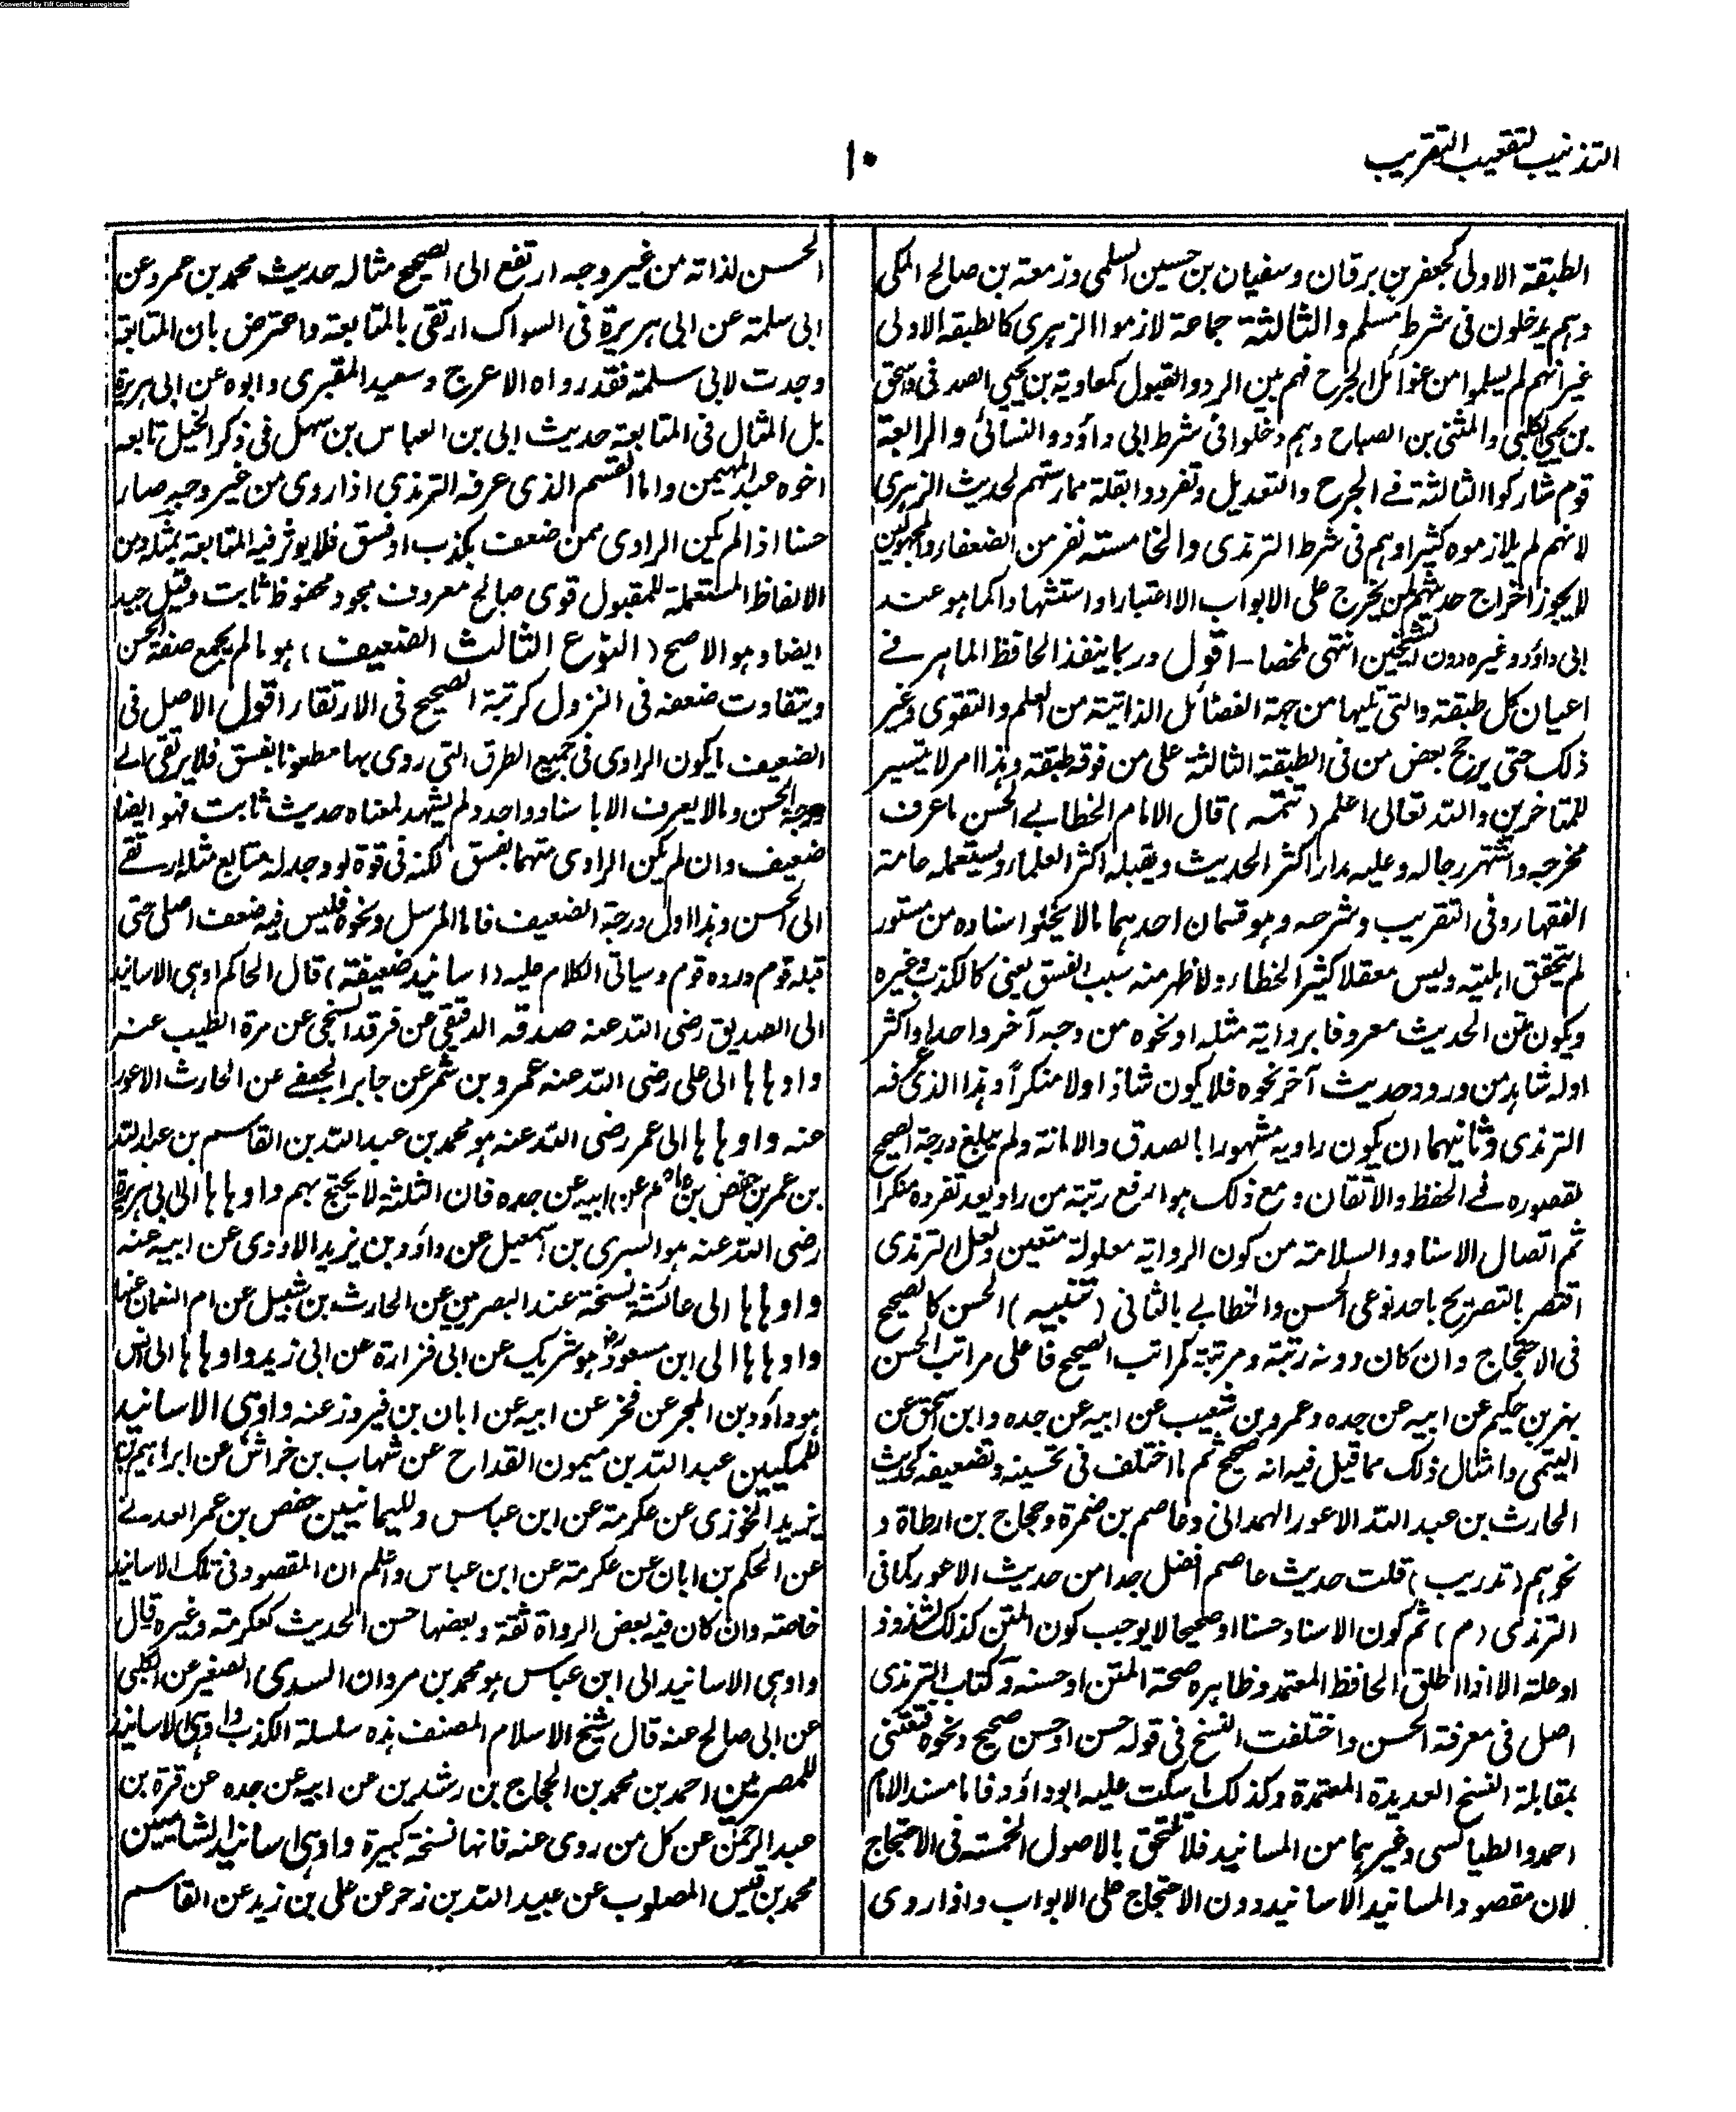 Converted by Tiff Combine - unregistered
التذنيب لتعقيب التقريب
١٠
الطبقة الاولى كجعفر بن برقان وسفيان بن حسين السلمي وزمعة بن صالح المكى
وهم يدخلون فى شرط مسلم والثالثة جماعة لازموا الزهرى كالطبقة الاولى
غير انهم لم يسلموا من غوائل الجرح فهم بين الرد والقبول كمعاوية بن يحيى الصدفى واسحق
بن يحيى الكلبي والمثنى بن الصباح وهم دخلوا فى شرط ابى داؤد والنسائى والرابعة
قوم شاركوا الثالثة فے الجرح والتعديل وتفردوا بقلة ممارستهم لحديث الزهرى
لانهم لم يلازموه كثيرا وهم فى شرط الترمذى والخامسة نفر من الضعفاء والمجهولين
لا يجوز اخراج حديثهم لمن يخرج على الابواب الا اعتبارا واستشهادا كما هو عند
ابى داؤد وغيره دون الشيخين انتهى ملخصا - اقول وربما ينفذ الحافظ الماهر فے
اعيان كل طبقة والتى تليها من جهة الفضائل الذاتية من العلم والتقوى وغير
ذلك حتى يرجح بعض من فى الطبقة الثالثة على من فوقه طبقة وهذا امر لا يتيسر
للمتاخرين والله تعالى اعلم (تتمه) قال الامام الخطابے الحسن ما عرف
مخرجه واشتهر رجاله وعليه مدار اكثر الحديث ويقبله اكثر العلماء ويستعمله عامة
الفقهاء وفى التقريب وشرحه وهو قسمان احدهما ما لا يخلو اسناده من مستور
لم يتحقق اهليته وليس مغفلا كثير الخطاء ولا ظهر منه سبب الفسق يعنى كالكذب وغيره
ويكون متن الحديث معروفا برواية مثله او نحوه من وجه آخر واحد او اكثر
اوله شاهد من ورود حديث آخر نحوه فلا يكون شاذا ولا منكراً وهذا الذى عرفه
الترمذى وثانيهما ان يكون راويه مشهورا بالصدق والامانة ولم يبلغ درجة الصحيح
لقصوره فے الحفظ والاتقان ومع ذلك هو ارفع رتبة من راو يعد تفرده منكرا
ثم اتصال الاسناد والسلامة من كون الرواية معلولة متعين ولعل الترمذى
اقتصر بالتصريح باحد نوعى الحسن والخطابے بالثانى (تنبيه) الحسن كالصحيح
فى الاحتجاج وان كان دونه رتبة ومرتبة كمراتب الصحيح فاعلى مراتب الحسن
بهز بن حكيم عن ابيه عن جده وعمرو بن شعيب عن ابيه عن جده وابن اسحق عن
التيمى وامثال ذلك مما قيل فيه انه صحيح ثم ما اختلف فى تحسينه وتضعيفه كحديث
الحارث بن عبد الله الاعور الهمدانى وعاصم بن ضمرة وحجاج بن ارطاة و
نحوهم (تدريب) قلت حديث عاصم افضل جدا من حديث الاعور كما فى
الترمذى (م) ثم كون الاسناد حسنا او صحيحا لا يوجب كون المتن كذلك لشذوذ
او علة الا اذا اطلق الحافظ المعتمد وظاهره صحة المتن او حسنه وكتاب الترمذى
اصل فى معرفة الحسن واختلفت النسخ فى قوله حسن او حسن صحيح ونحوه فيعتنى
بمقابلة النسخ العديدة المعتمدة وكذلك ما سكت عليه ابو داؤد فاما مسند الامام
احمد والطيالسى وغيرهما من المسانيد فلا تلتحق بالاصول الخمسة فى الاحتجاج
لان مقصود المسانيد الاسانيد دون الاحتجاج على الابواب واذا روى
الحسن لذاته من غير وجه ارتفع الى الصحيح مثاله حديث محمد بن عمرو عن
ابى سلمة عن ابى هريرة فى السواك ارتقى بالمتابعة واعترض بان المتابعة
وجدت لابى سلمة فقد رواه الاعرج وسعيد المقبرى وابوه عن ابى هريرة
بل المثال فى المتابعة حديث ابى بن العباس بن سهل فى ذكر الخيل تابعه
اخوه عبد المهيمن واما القسم الذى عرفه الترمذى اذا روى من غير وجه صار
حسنا اذا لم يكن الراوى ممن ضعف بكذب او فسق فلا يوثر فيه المتابعة بمثله ومن
الالفاظ المستعملة للمقبول قوى صالح معروف مجود محفوظ ثابت وقيل جيد
ايضا وهو الاصح (النوع الثالث الضعيف) هو ما لم يجمع صفة الحسن
ويتفاوت ضعفه فى النزول كرتبة الصحيح فى الارتقاء اقول الاصل فى
الضعيف ما يكون الراوى فى جميع الطرق التى روى بها مطعونا بفسق فلا يرتقى الے
درجة الحسن وما لا يعرف الا باسناد واحد ولم يشهد لمعناه حديث ثابت فهو ايضا
ضعيف وان لم يكن الراوى متهما بفسق لكنه فى قوة لو وجد له متابع مثله ارتقے
الى الحسن وهذا اول درجة الضعيف فاما المرسل ونحوه فليس فيه ضعف اصلى حتى
قبله قوم ورده قوم وسياتى الكلام عليه (اسانيد ضعيفة) قال الحاكم اوهى الاسانيد
الى الصديق رضى الله عنه صدقه الدقيقى عن فرقد السبخى عن مرة الطيب عنه
واوهاها الى على رضى الله عنه عمرو بن شمر عن جابر الجعفے عن الحارث الاعور
عنه واوهاها الى عمر رضى الله عنه هو محمد بن عبد الله بن القاسم بن عبد الله
بن عمر بن حفص بن عاصم عن ابيه عن جده فان الثلثة لا يحتج بهم واوهاها الى ابى هريرة
رضى الله عنه هو السرى بن اسمعيل عن داؤد بن يزيد الاودى عن ابيه عنه
واوهاها الى عائشة نسخة عند البصريين عن الحارث بن شبيل عن ام النعمان عنها
واوهاها الى ابن مسعود رض هو شريك عن ابى فزارة عن ابى زيد واوهاها الى انس
هو داؤد بن المحبر عن قحذم عن ابيه عن ابان بن فيروز عنه واوهى الاسانيد
للمكيين عبد الله بن ميمون القداح عن شهاب بن خراش عن ابراهيم بن
يزيد الخوزى عن عكرمة عن ابن عباس ولليمانيين حفص بن عمر العدنے
عن الحكم بن ابان عن عكرمة عن ابن عباس واعلم ان المقصود فى تلك الاسانيد
خاصة وان كان فيه بعض الرواة ثقة وبعضها حسن الحديث كعكرمة وغيره قال
واوهى الاسانيد الى ابن عباس هو محمد بن مروان السدى الصغير عن الكلبى
عن ابى صالح عنه قال شيخ الاسلام المصنف هذه سلسلة الكذب واوهى الاسانيد
للمصريين احمد بن محمد بن الحجاج بن رشدين عن ابيه عن جده عن قرة بن
عبد الرحمن عن كل من روى عنه فانها نسخة كبيرة واوهى اسانيد الشاميين
محمد بن قيس المصلوب عن عبيد الله بن زحر عن على بن زيد عن القاسم